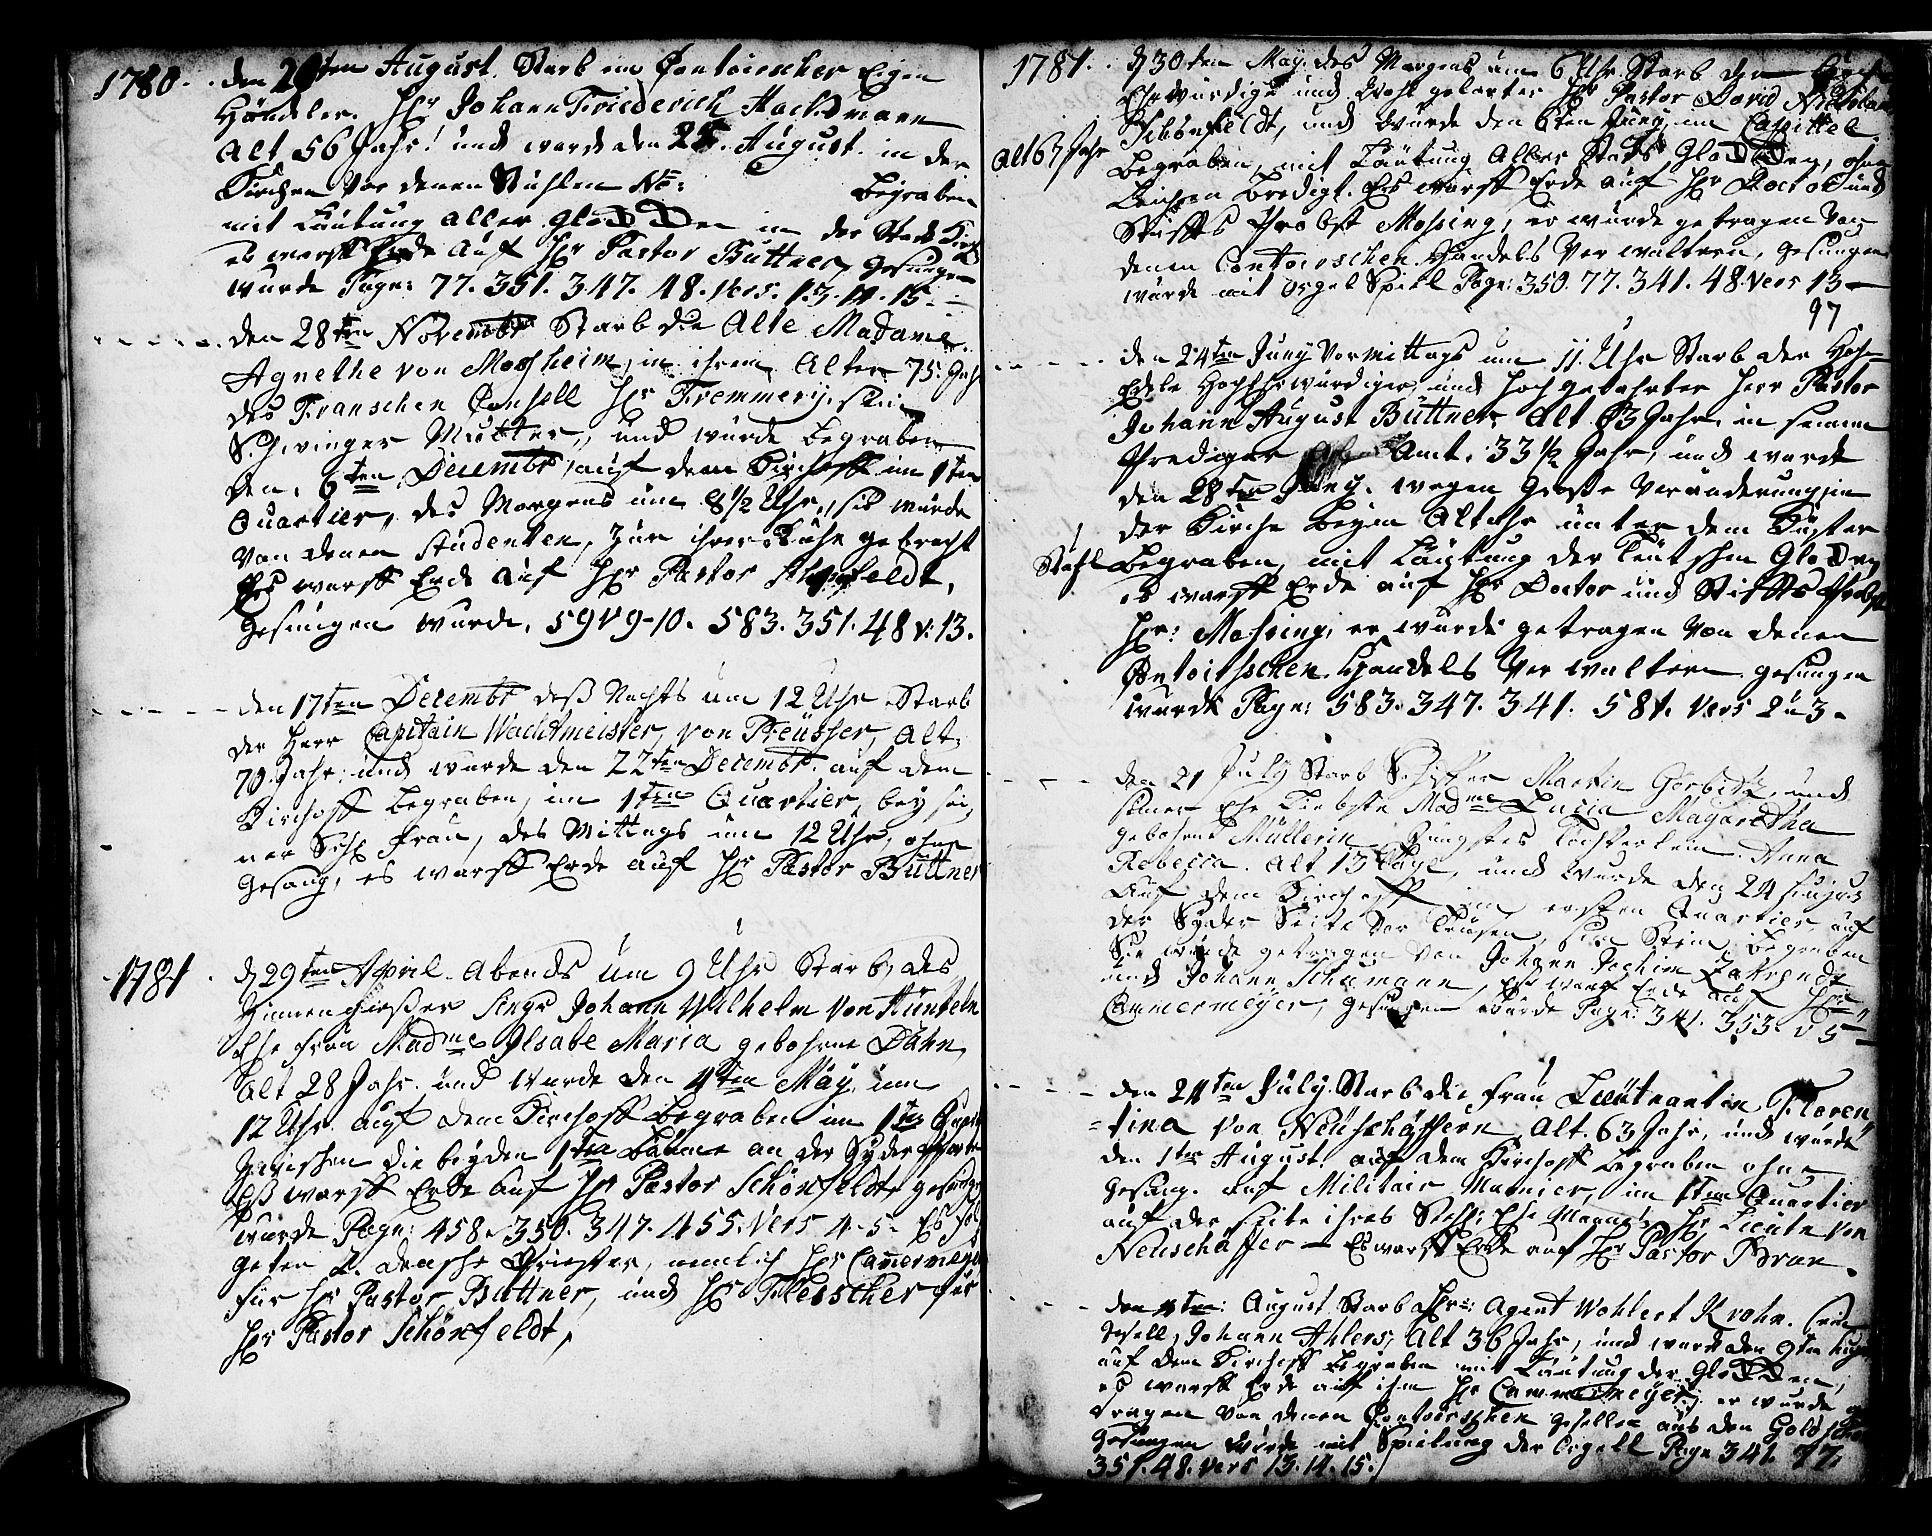 1780. den 29ten August. Starb im Contoirscher Eigen
Händler. Hr Johann Friederich Hackmann
Alt 56 Jahr! und wurde den 25. August. in der
Kirchen Vor denen Stühlen No: Begraben
mit Läutung aller Glocken in der Stadt Kirch
es warff Erde Auf Hr Pastor Büttner, gesungen
wurde Pagn: 77. 351. 347. 48. vers. 13. 14. 15.
den 28ten Novembr Starb die Alte Madame
Agnethe von Mosheim, in ihrem Alter 75. Jahr
des Franschen Consell Hr Fremmery, sein
Schwinger Mutter, und wurde Begraben
den, 6ten Decembr, auf dem Kirchoff im 1ten
Quartier, des Morgens um 8 1/2 Uhr, sie wurde
von denen Studenten, zur ihrer Ruhe gebracht
Es warff Erde auf Hr Pastor Schönfeldt,
Gesungen wurde, 59 V 9-10. 583. 351. 48 v: 13.
den 17ten Decembr deß Nachts um 12 Uhr Starb
der Herr Capitain Wachtmeister, von Preüsser, Alt,
79. Jahr. und wurde den 22ten Decembr. auf dem
Kirchoff Begraben, im 1ten Quartier, bey sei,
ner Sehl Frau, des Mittags um 12 Uhr, ohne
Gesang, es warff Erde auf Hr Pastor Büttner
1781. d 29ten April Abends um 9 Uhr Starb, des
Zinnengießer Johann Wilhelm von Hünteln
Ehe frau Madme Ilsabe Maria gebohrne Dähn,
Alt 28 Jahr. und wurde den 4ten May, um
12 Uhr auf dem Kirchoff Begraben im 1ten
Zwischen die beyden 1ten Bäume an der Syder
Eß warff Erde auf Hr Pastor Schönfeldt, gesungen
wurde Pagn: 458. 350. 347. 455. Vers 4-5. Es
geten 2. densche Priester, nemlich Hr Camermeyer
für Hr Pastor Büttner, und Hr Fleischer für
Hr Pastor Schönfeldt,
1781. d 30ten May. des Morgens um 6 Uhr. Starb der
Ehrwürdige und Wohl gelarter Hr Pastor David Christian
Schönfeldt, und wurde den 6ten Juny im Capittel
Alt 67 Jahr Begraben, mit Läutung Aller Stads Glocken, ohne
Leichen Predigt. Es warff Erde auf Hr Doctor und
Stiffts Probst Mossing, er wurde getragen Von
denen Contoirschen Handels Verwaltern, gesungen
wurde mit Orgel Spiel Pagn: 350. 77. 341. 48. vers 13
97
den 24ten Juny Vormittags um 11. Uhr Starb der Hoch
Edle Hochehrwürdiger, und Hochgelahrter Herr Pastor
Johann August Büttner, Alt 63 Jahr, in seinem
Prediger Amt. 33 1/2 Jahr, und wurde
den 28ten Juny. wegen Große Veränderung, in
der Kirche beym Altahr unter dem Küster
Stuhl Begraben, mit Läutung der Teutschen Glocken
es warff Erde auf Hr Doctor und Stiffts Probst
Hr: Mossing, er wurde getragen Von denen
Contoirschen Handels Verwaltern gesungen
wurde Pagn: 583. 347. 341. 581. Vers 2 u 3.
den 21 July Starb Schiffer Martin Gerbitz, und
seiner Ehe Liebste Madme Lucia Magaretha
gebohrne Müllerin, Jungstes Töchterlein Anna
Rebecca. Alt 13 Tage, und wurde den 24 hujus
Auf dem Kirchoff im ersten Quartier auf
der Syder Seite Vor Stein, Begraben
Sie wurde getragen von Johann Jochim
und Johann Schumann, Es warf Erde auf Hr:
Cammermeyer, gesungen wurde Pagn: 341. 353. v 5
den 24ten July. Starb die Frau Lieutnantin Floren,
=tina von Neuschäffern, Alt. 63 Jahr, und wurde
den 1ten August. auf dem Kirchoff Begraben ohne
Gesang. auf Militair Mannier, im 1ten Quartier
auf der seite ihres Sehl: Ehe Mannes Hr Lieute von
Neuschäffer — Es warff Erde auf Hr Pastor Brun.
den 4ten: August Starb Hrn: Agent Wohlert Krohn. sein
Gesell, Johann Ahlers, Alt 36 Jahr, und wurde den 9ten hujus
auf dem Kirchoff Begraben mit Läutung der Glocken,
es warff Erde auf ihm Hr Cammermeyer, er wurde ge
tragen Von denen Contoirschen Gesellen aus den
Gesungen wurde mit Spielung der Orgell Pagn 341. 77.
351. 48. vers 13. 14. 15.